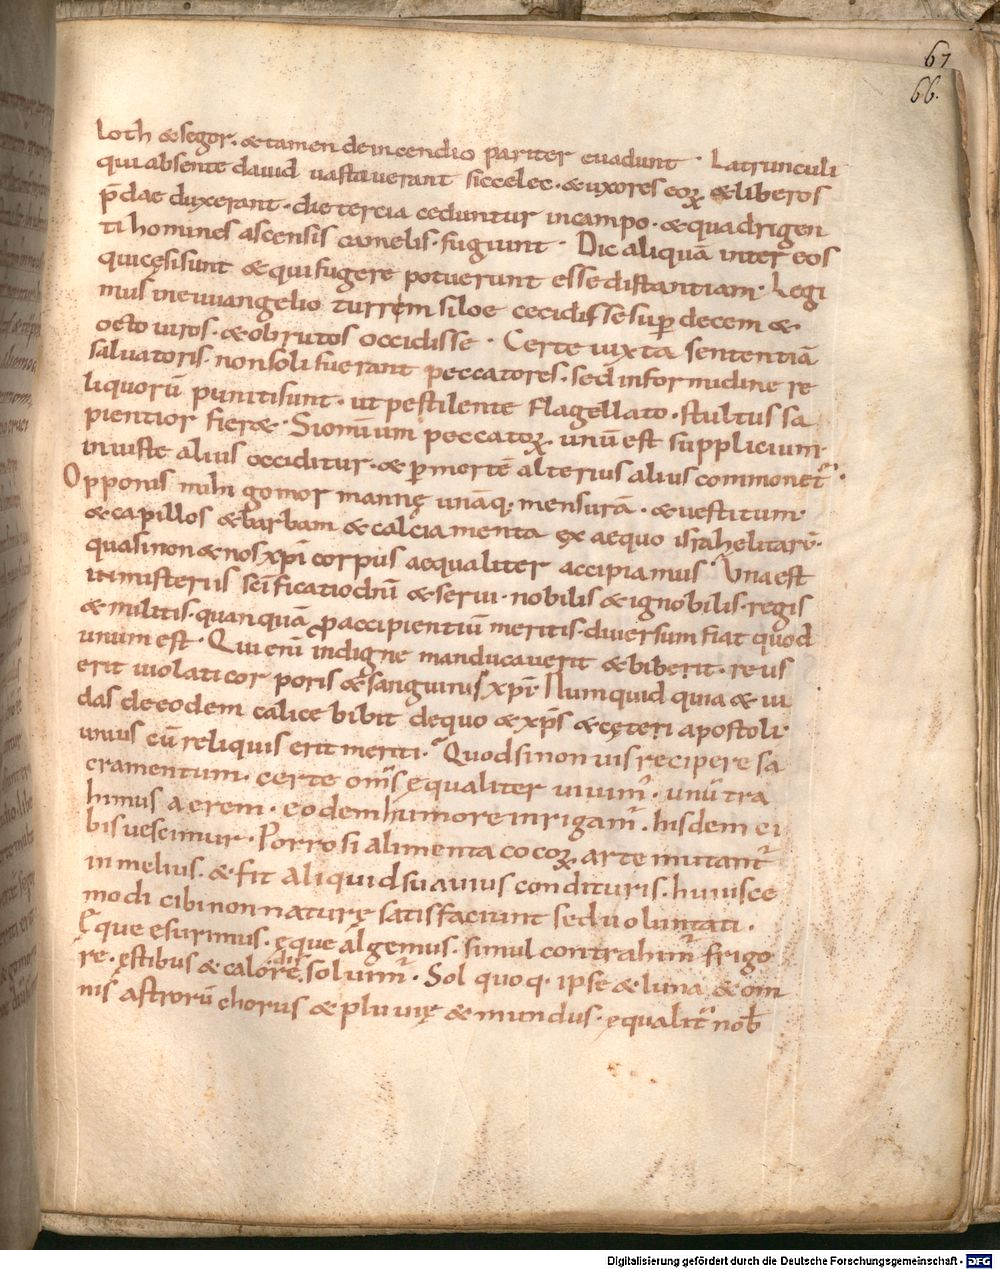 67
66.
Loth & segor. &tamen deincendio pariter euadunt · Latrunculi
qui absente dauid uastauerant siccelec · &uxores eoꝝ &liberos
p̄dae duxerant · die tercia ceduntur incampo · &quadrigen
ti homines ascensis camelis · fugiunt · Dic aliquā inter eos
quicęsisunt & quifugere potuerunt esse distantiam · Legi
mus ineuuangelio turrem siloe cecidisse sup̄ decem &
octo uiros · &obrutos occidisse · Certe iuxta sententiā
saluatoris · nonsoli fuerant peccatores · sed infor midine re
liquorū punitisunt · ut pestilente flagellato · stultus sa
pientior fier& · Siomnium peccatoꝝ unū est supplicium ·
iniuste alius occiditur · & p̄ mortē alterius alius commonet̄ ·
Opponis mihi gomor mannę unāq; mensurā · & uestitum ·
&capillos &barbam & calcia menta ex aequo israhelitarū ·
quasinon&nos xp̄i corpus aequaliter accipiamus · Una est
inmisteriis sc̄ificatio dnī & serui · nobilis &ignobilis · regis
& militis · quanquā p̄ accipientiū meritis · diuersum fiat quod
unum est · Qui enī indigne manducauerit & biberit · reus
erit uiolati cor poris & sanguinis xp̄i · Numquid quia & iu
das deeodem calice bibit dequo & xp̄s & cęteri apostoli ·
unius cū reliquis erit meriti · Quodsinon uis recipere sa
cramentum · certe om̄s ęqualiter uiuim̄ · unū tra
himus aerem · eodemhumore inrigam̄ · hisdem ci
bis uescimur · Porro si alimenta cocoꝝ arte mutant̄
in melius · & fit aliquid suauius condituris · huiusce
modi cibi non naturę satisfaciunt sed uoluntati ·
Ęque esurimus · ęque algemus · simul contrahim̄ frigo
re · ęstibus & calore soluim̄ · Sol quoq; ipse & luna & om
nis astrorū chorus & pluuię & mundus · ęqualit̄ nob̄
Digitalisierung gefördert durch die Deutsche Forschungsgemeinschaft - DFG